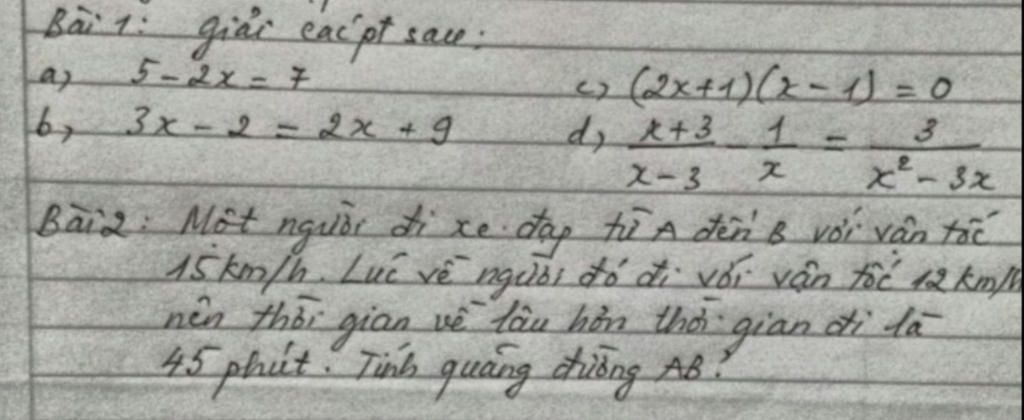 Bài 1: giải các pt sau:
a, 5 - 2x = 7 c, (2x+1)(x-1) = 0
b, 3x - 2 = 2x + 9 d, \frac{x+3}{x-3} - \frac{1}{x} = \frac{3}{x^2-3x}
Bài 2: Một người đi xe đạp từ A đến B với vận tốc
15km/h. Lúc về người đó đi với vận tốc 12km/h
nên thời gian về lâu hơn thời gian đi là
45 phút. Tính quãng đường AB?